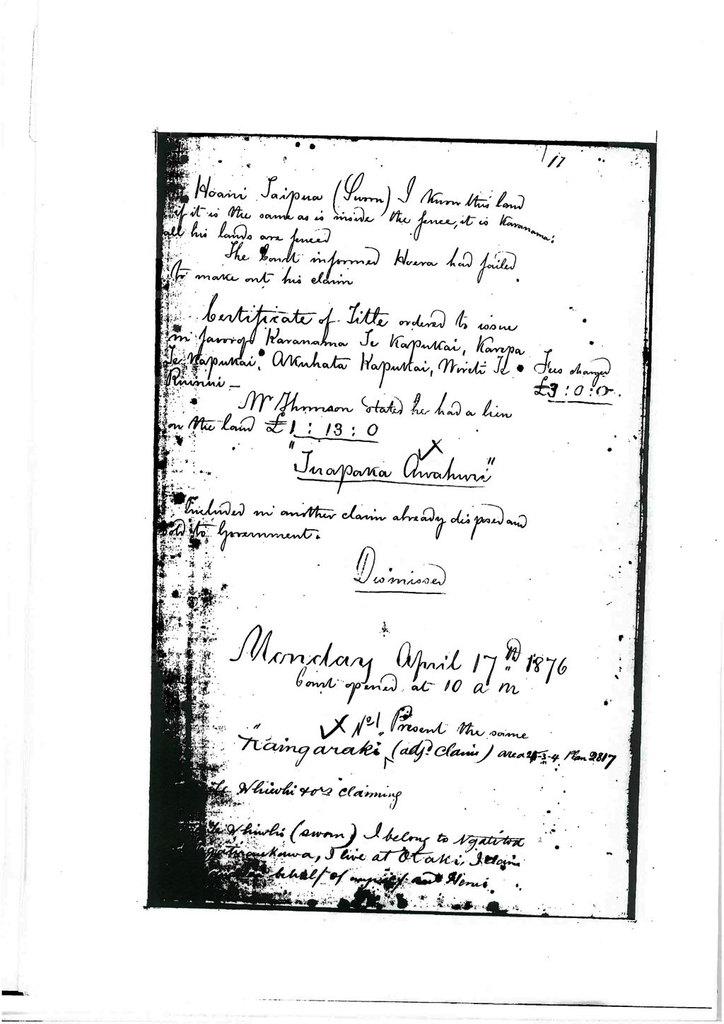 17
Hoani Taipua (Sworn) I know this land
if it is the same as is inside the fence, it is Karanama;
all his lands are fenced
The Court informed Hoera had failed
to make out his claim
Certificate of Title ordered to issue
in favor of Karanama Te Kapukai, Karepa
Te Kapukai, Akuhata Kapukai, Wireti Te
Fees charged
£3:0:0
Mr Thomson stated he had a lien
on the land £1:13:0
"Turapaka Awahuri"
Included in another claim already disposed and
sold to Government.
Dismissed
Monday April 17th 1876
Court opened at 10 a m
No 1 Present the same
"Kaingaraki" (adjd claim) area 2 Plan 2817
Whiwhi & ors claiming
Te Whiwhi (sworn) I belong to Ngatitoa
Ngatiraukawa, I live at Otaki, I claim
behalf of myself and